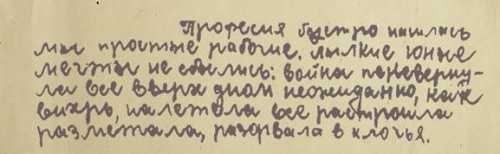 Професия быстро нашлась
мы простые рабочие. Пылкие юные
мечты не сбылись: война переверну-
ла все вверх дном неожиданно, как
вихрь, налетела все растрошла
разметала, разорвала в клочья.